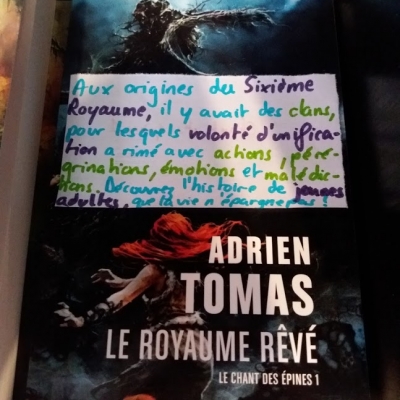 Aux origines du Sixième
Royaume, il y avait des clans,
pour lesquels volonté d'unifica-
tion a rimé avec actions, péré-
grinations, émotions et malédic-
tions. Découvrez l'histoire de jeunes
adultes, que la vie n'épargne pas !
ADRIEN
TOMAS
LE ROYAUME RÊVÉ
LE CHANT DES ÉPINES 1